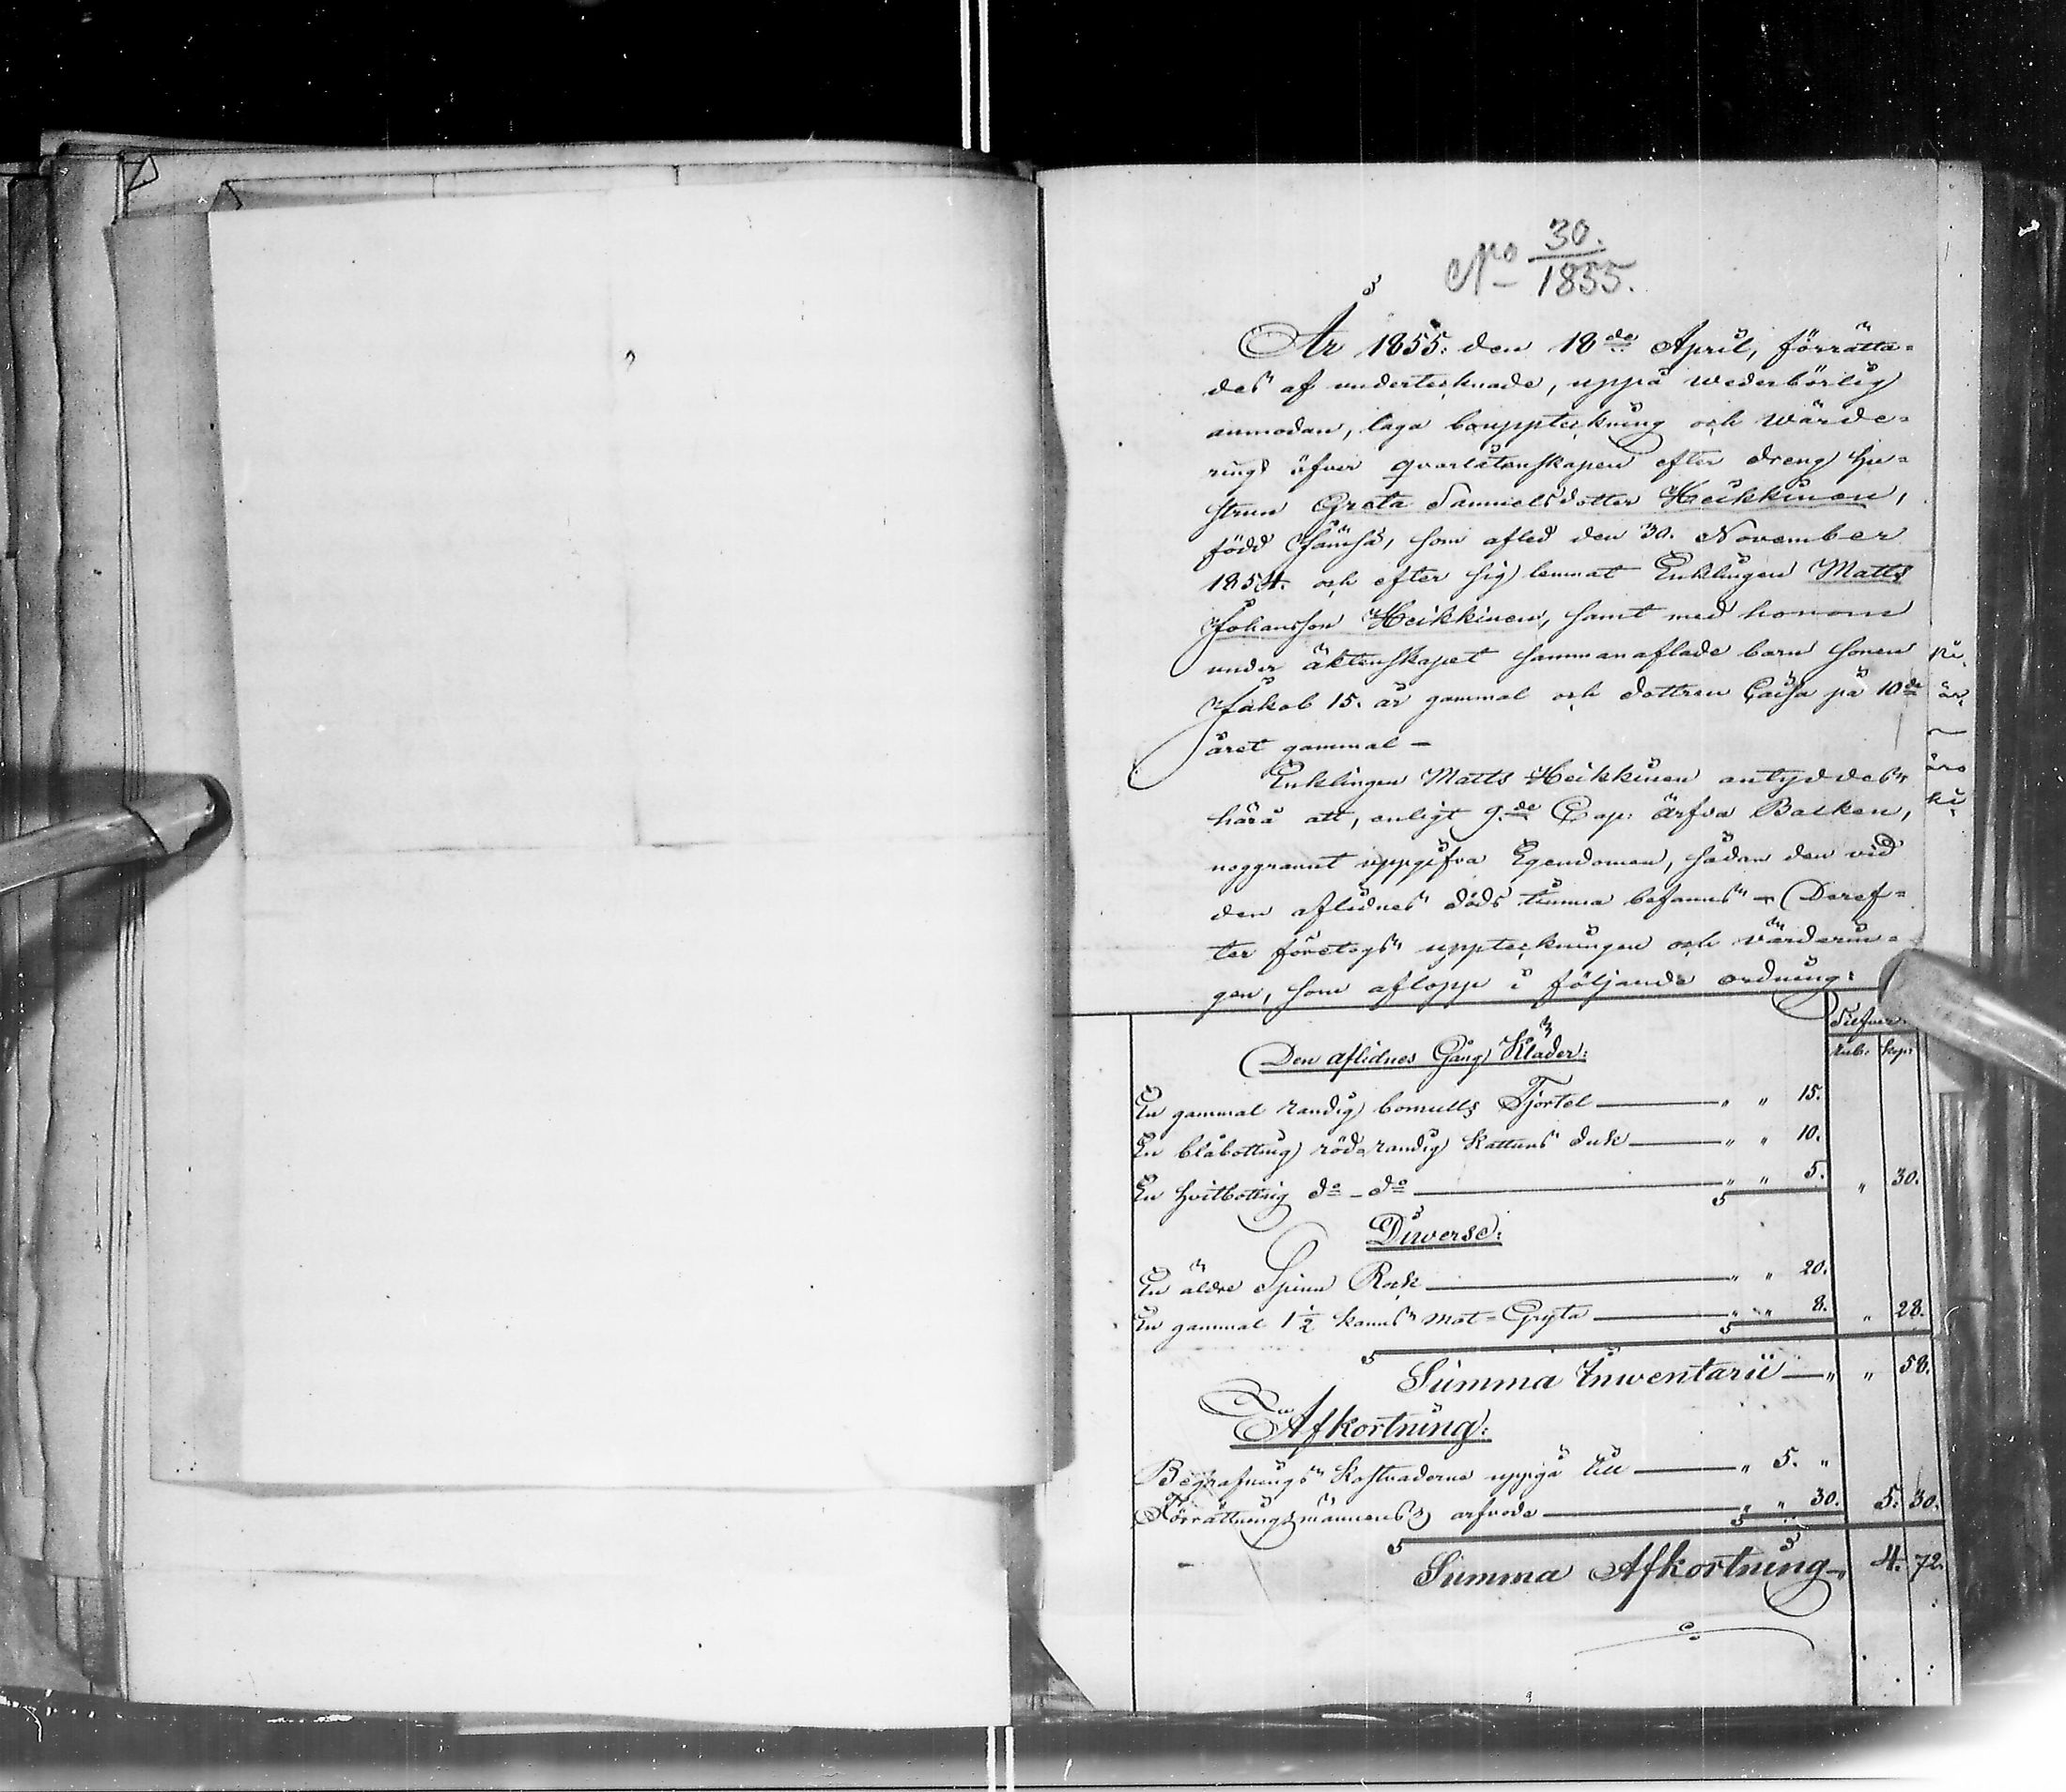 No 30./1855.
År 1855. den 18de April, förrätta=
des af undertecknade, uppå wederbörlig
anmodan, laga bouppteckning och wärde=
ring öfver qvarlåtenskapen efter dreng hu=
strun Greta Samuelsdotter Heikkinen,
född Jämsä, som afled den 30. November
1854. och efter sig lemnat Enklingen Matts
Johansson Heikkinen, samt med honom
under äktenskapet sammanaflade barn sonen
Jakob 15. år gammal och dottren Caisa på 10de
året gammal -
Enklingen Matts Heikkinen antyddes
härå att, enligt 9.de Cap: Ärfda Balken,
noggrannt uppgifva Egendomen, sådan den vid
den aflidnes döds timma befanns - Deref=
ter företogs uppteckningen och värderin=
gen, som aflopp i följande ordning:
Silfver.
Rub: Kop:
Den aflidnes Gång Kläder:
En gammal randig bomulls Tjortel " " 15.
En blåbottnig röd randig Kattuns duk " " 10.
En hvitbottnig do - do " " 5. " 30.
Diverse:
En äldre Spinn Rock " " 20.
En gammal 1 1/2 kanns mat=Gryta " " 8. " 28.
Summa Inwentarii " " 58.
Afkortning:
Begrafnings Kostnaderne uppgå till " 5. "
Förrättningsmännens arfvode " " 30. 5. 30.
Summa Afkortning 4. 72.